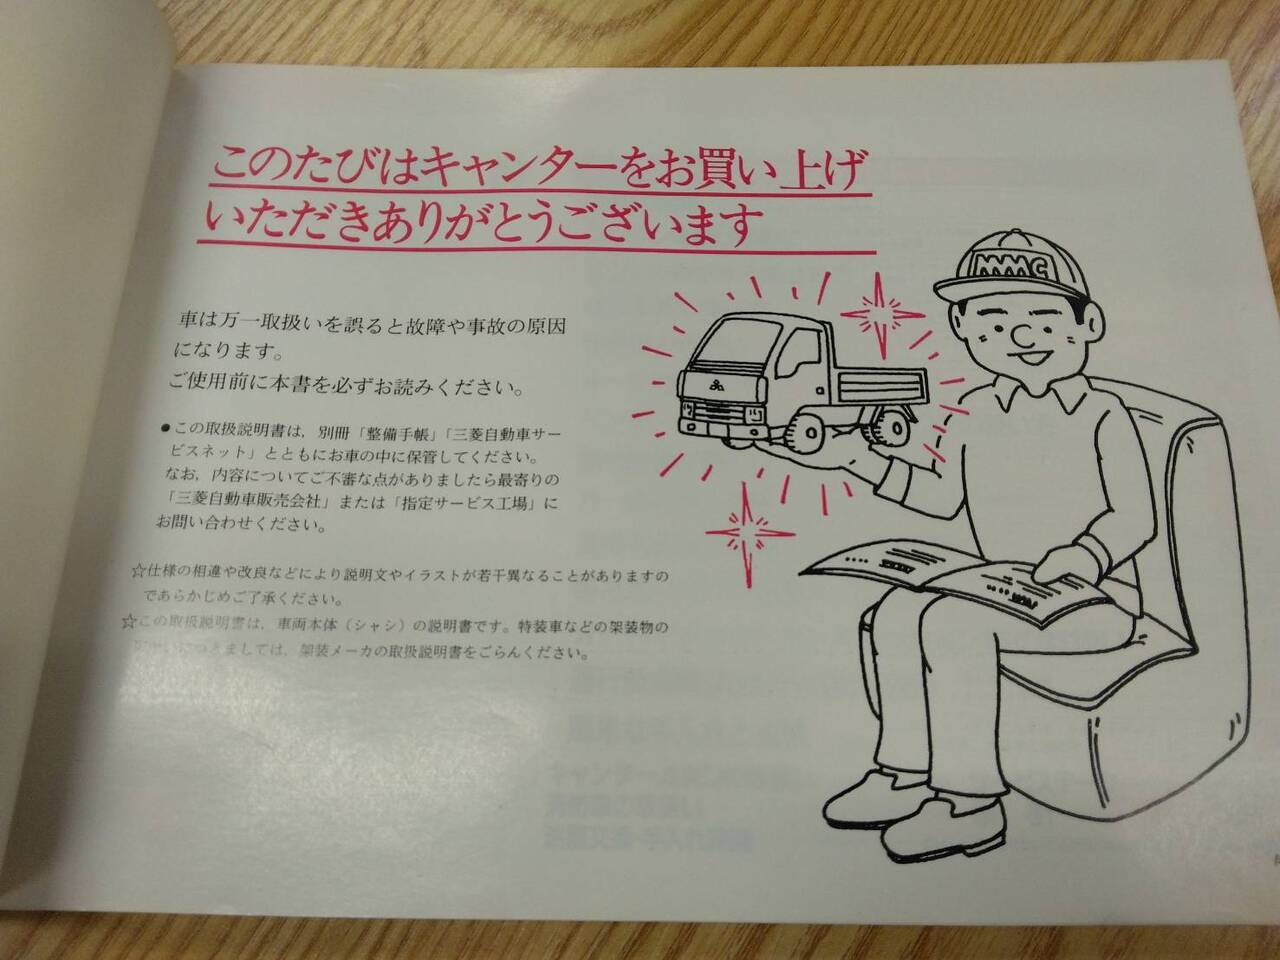 このたびはキャンターをお買い上げ
いただきありがとうございます
車は万一取扱いを誤ると故障や事故の原因
になります。
ご使用前に本書を必ずお読みください。
●この取扱説明書は，別冊「整備手帳」「三菱自動車サー
ビスネット」とともにお車の中に保管してください。
なお，内容についてご不審な点がありましたら最寄りの
「三菱自動車販売会社」または「指定サービス工場」に
お問い合わせください。
☆仕様の相違や改良などにより説明文やイラストが若干異なることがありますの
であらかじめご了承ください。
☆この取扱説明書は，車両本体（シャシ）の説明書です。特装車などの架装物の
つきましては，架装メーカの取扱説明書をごらんください。
MMC